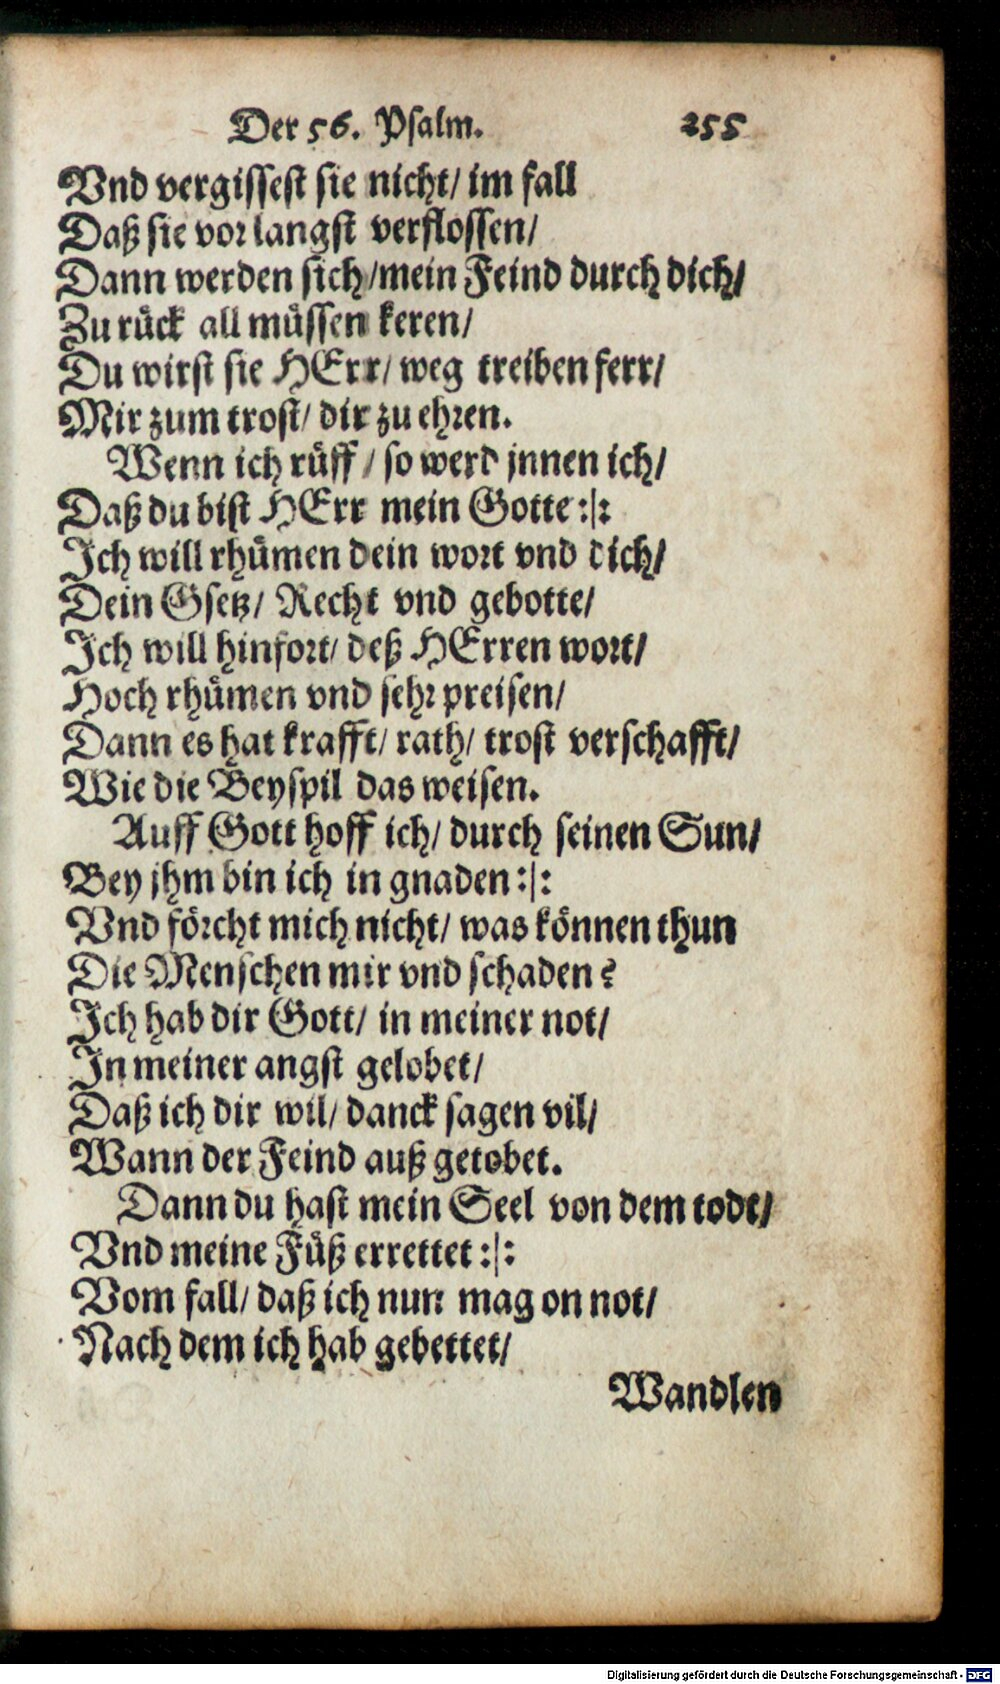 Der 56. Psalm. 255
Vnd vergissest sie nicht/ im fall
Daß sie vor langst verflossen/
Dann werden sich/ mein Feind durch dich/
Zu rück all müssen keren/
Du wirst sie HErr/ weg treiben ferr/
Mir zum trost/ dir zu ehren.
Wenn ich rüff/ so werd jnnen ich/
Daß du bist HErr mein Gotte :|:
Ich will rhümen dein wort vnd dich/
Dein Gsetz/ Recht vnd gebotte/
Ich will hinfort/ deß HErren wort/
Hoch rhümen vnd sehr preisen/
Dann es hat krafft/ rath/ trost verschafft/
Wie die Beyspil das weisen.
Auff Gott hoff ich/ durch seinen Sun/
Bey jhm bin ich in gnaden :|:
Vnd förcht mich nicht/ was können thun
Die Menschen mir vnd schaden?
Ich hab dir Gott/ in meiner not/
In meiner angst gelobet/
Daß ich dir wil/ danck sagen vil/
Wann der Feind auß getobet.
Dann du hast mein Seel von dem todt/
Vnd meine Füß errettet :|:
Vom fall/ daß ich nun mag on not/
Nach dem ich hab gebettet/
Wandlen
Digitalisierung gefördert durch die Deutsche Forschungsgemeinschaft - DFG